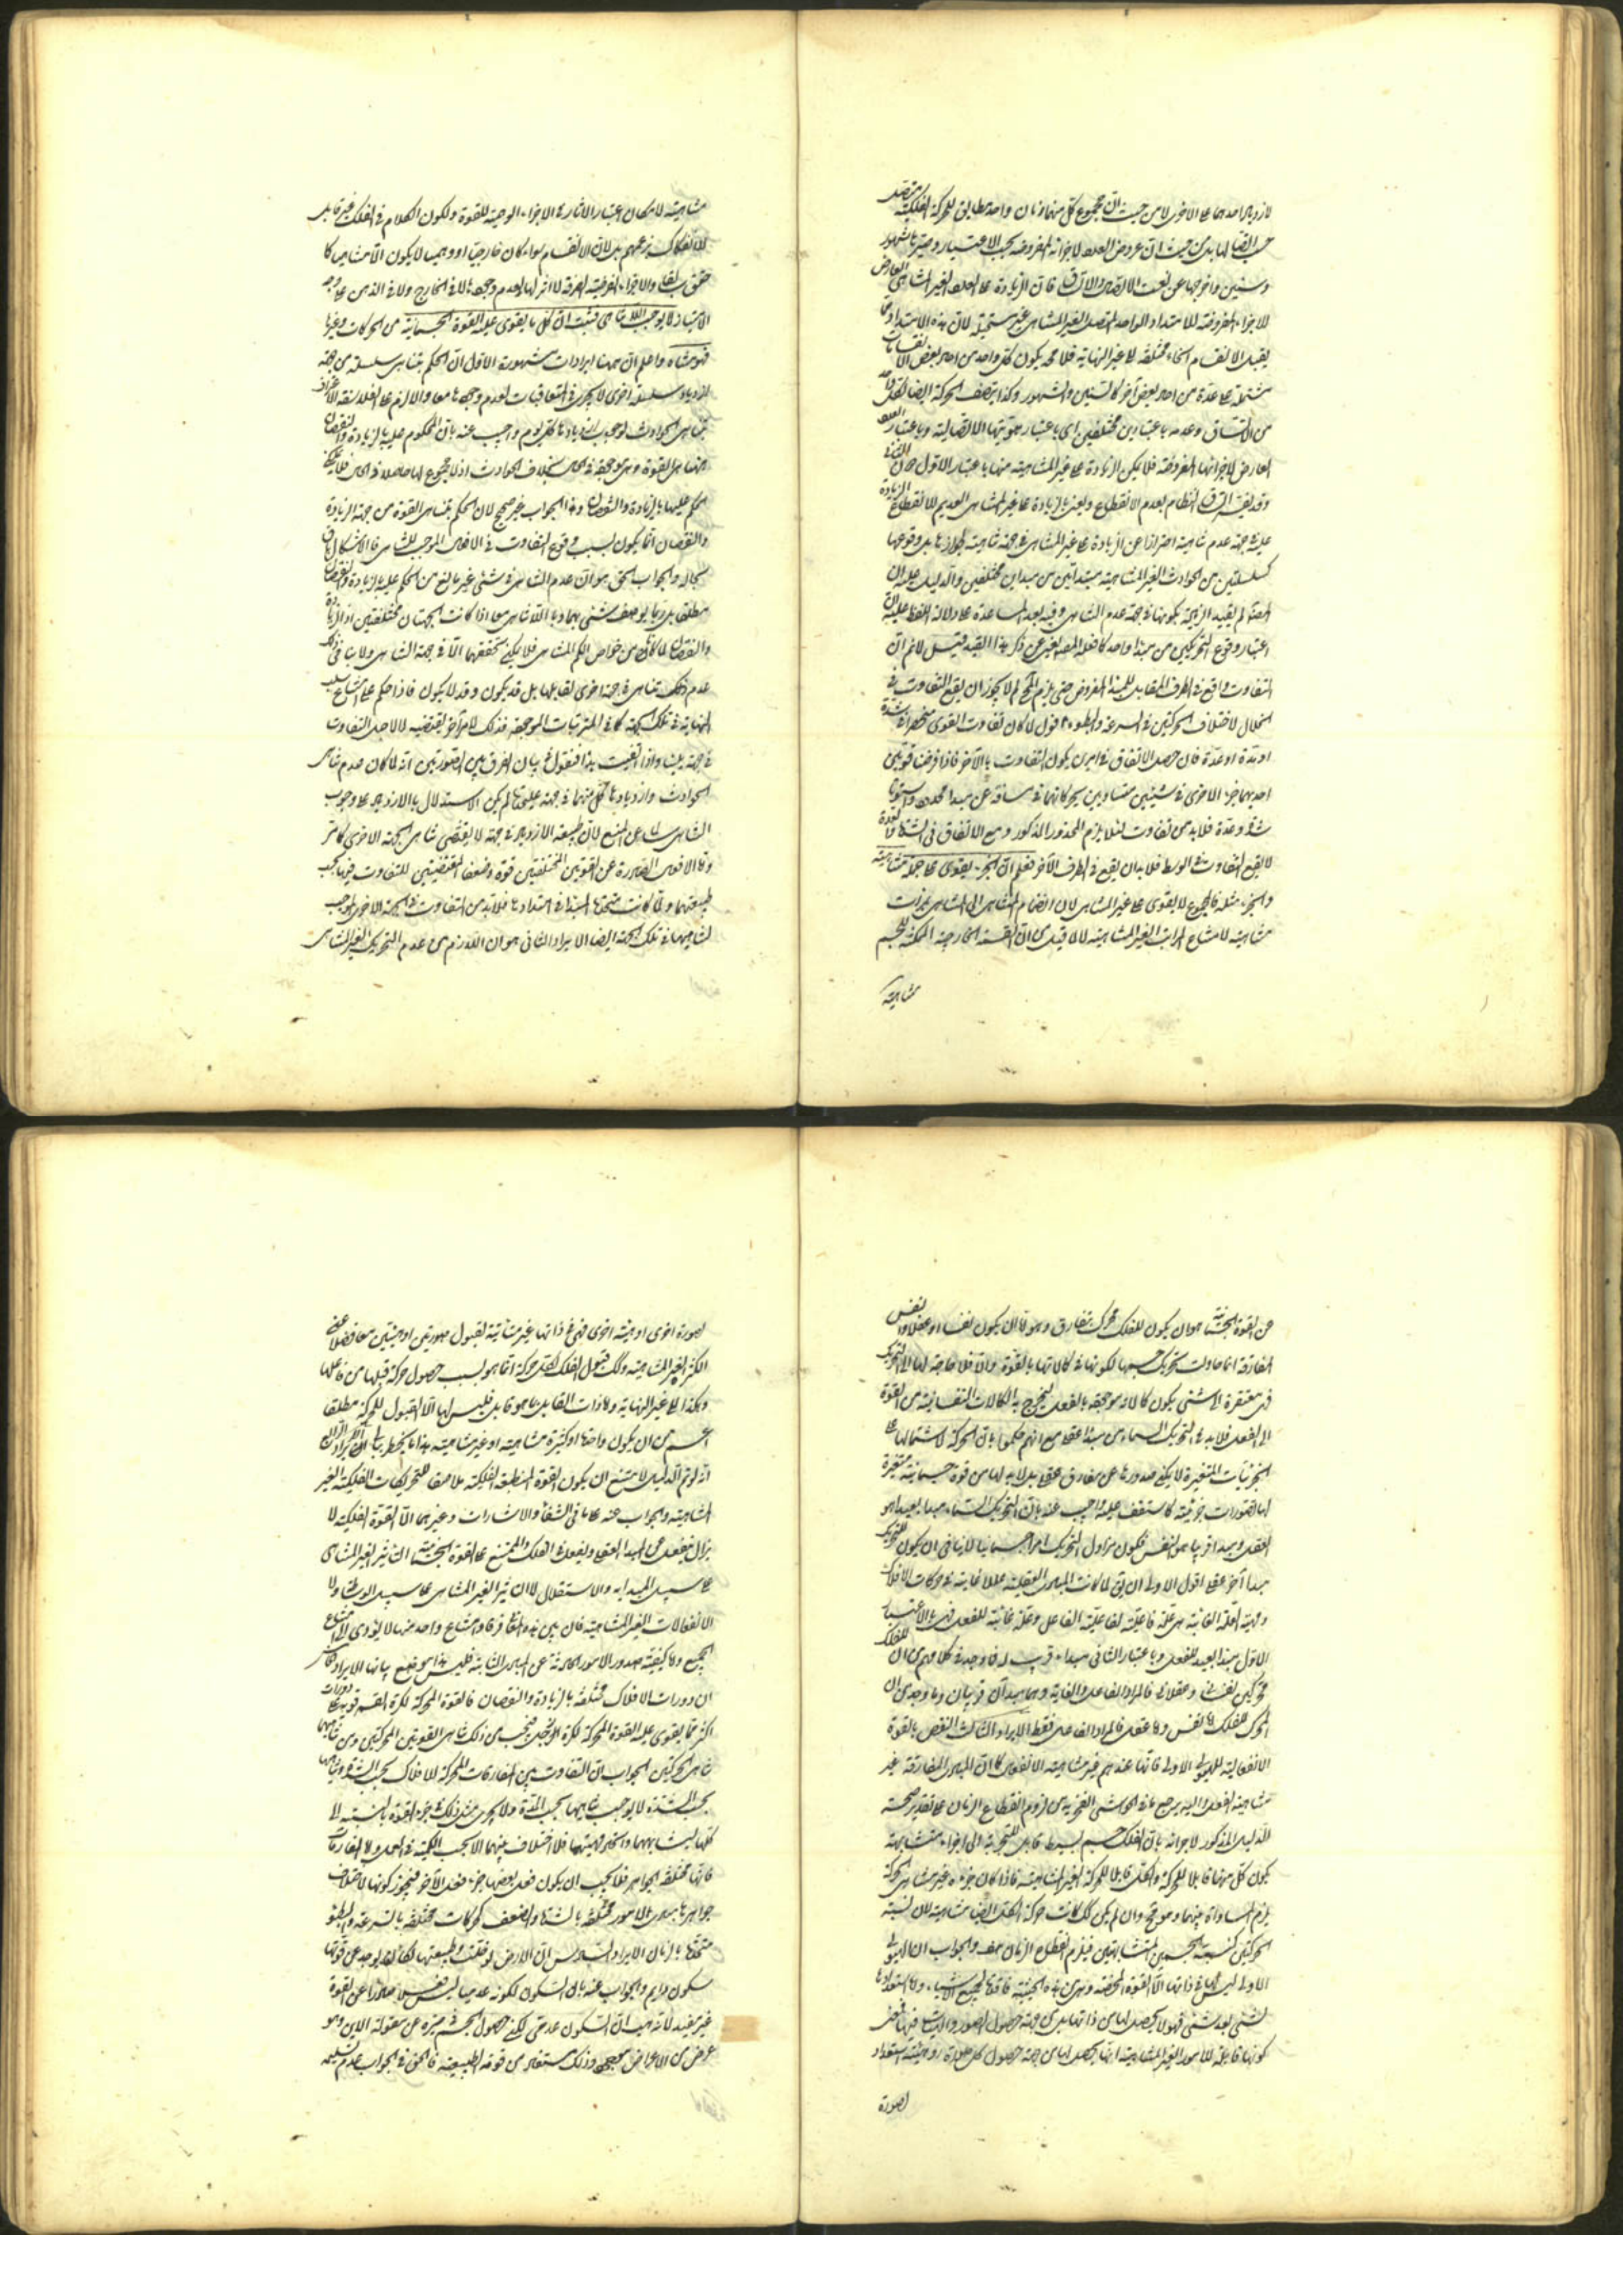 لازدياد احدهما على الاخرى لا من حيث ان مجموع كل منهما زمان واحد مطابق للحركة الفلكية متصل
حسب اتصالها بل من حيث ان عروض العدد لاجزائه المفروضة بحسب الاعتبار وصيرتها شهور
وسنين واخرجها عن نعت الاتصال والاتساق فان الزيادة على العدد الغير المتناهى العارض
للاجزاء المفروضة للامتداد الواحد المتصل الغير المتناهى غير مستحيلة لان هذه الامتداد مما
يقبل الانقسام انحاء مختلفة الى غير النهاية فلا محة يكون كل واحد من احد بعض الانقسامات
مشتملة على عدة من احد بعض آخر كالسنين والشهور وكذا يتصف الحركة ايضا بكل واحد
من الاتساق وعدمه باعتبارين مختلفين اى باعتبار هويتها الاتصالية وباعتبار العدد
العارض لاجزائها المفروضة فلا يكون الزيادة على غير المتناهية منها باعتبار الاول حال الثانى
وقد يفسر اتساق النظام بعدم الانقطاع ويعنى بالزيادة على غير المتناهى العديم الانقطاع الزيادة
عليه فى جهة عدم تناهيه احترازا عن الزيادة على غير المتناهى فى جهة تناهيه لجوازها بل وقوعها
كسلسلتين من الحوادث الغير المتناهية مبتدأتين من مبدأين مختلفين والدليل عليه ان
المصنف لم يقيد الزيادة بكونها فى جهة عدم التناهى وفيه بعد لمساعدة على دلالة اللفظ عليه
اعتبار وقوع التحريكين من مبدأ واحد كما فعله المصنف يغنى عن ذكر هذا القيد قيل لا نم ان
التفاوت واقع فى الطرف المقابل للمبدأ المفروض حتى يلزم المح لم لا يجوز ان يقع التفاوت فى
الخلال لاختلاف الحركتين فى السرعة والبطوء اقول لما كان تفاوت القوى منحصرا فى شدة
او مدة او عدة فان حصل الاتفاق فى امرين يكون التفاوت بالآخر فاذا فرضنا قوتين
احديهما جزء الاخرى فى شيئين متساويين يحركانهما فى مسافة عن مبدأ محدود واستويا
شدة وعدة فلا بد من تفاوت لئلا يلزم المحذور المذكور ومع الاتفاق فى الشدة والعدة
لا يقع التفاوت فى الوسط فلا بد ان يقع فى الطرف الآخر فعلم ان الجزء يقوى على جملة متناهية
والجزء مثله فالمجموع لا يقوى على غير المتناهى لان انضمام المتناهى الى المتناهى بمرات
متناهية لامتناع المراتب الغير المتناهية لا لما قيل من ان القسمة الخارجية الممكنة للجسم
متناهية
متناهية لامكان اعتبار الاثار فى الاجزاء الوهمية للقوة ولكون الكلام فى الفلك غير قابل
للانفكاك بزعمهم بل لان الانقسام سواء كان خارجيا او وهميا لا يكون الا متناهيا كما
حقق سابقا والاجزاء الفرضية الصرفة لا اثر لها لعدم وجودها لا فى الخارج ولا فى الذهن على وجه
الامتياز لا يوجب اللا تناهى فثبت ان كل ما يقوى عليه القوة الجسمانية من الحركات وغيرها
فهو متناه واعلم ان ههنا ايرادات مشهورة الاول ان الحكم بتناهى سلسلة من جهة
ازدياد سلسلة اخرى لا يجرى فى المتعاقبات لعدم وجودها معا والا لزم على الفلاسفة الاعتراف
بتناهى الحوادث لوجوب ازديادها كل يوم واجيب عنه بان المحكوم عليه بالزيادة والنقصان
ههنا هى القوة وهى موجودة فى الحال بخلاف الحوادث اذ لا مجموع لها حاصلا فى الحال فلا يمكن
الحكم عليها بالزيادة والنقصان وهذا الجواب غير صحيح لان الحكم بتناهى القوة من جهة الزيادة
والنقصان انما يكون بسبب وقوع التفاوت فى الافعال الموجب للتناهى فالاشكال باق
بحاله والجواب الحق هو ان عدم التناهى فى شئ غير مانع من الحكم عليه بالزيادة والنقصان
مطلقا بل ربما يوصف شئ بهما وباللاتناهى معا اذا كانت الجهتان مختلفتين اذ الزيادة
والنقصان لما كانا من خواص الكم المتناهى فلا يمكن تحققهما الا فى جهة التناهى ولا ينافى ذلك
عدم تناهى فى جهة اخرى تقابلها بل قد يكون وقد لا يكون فاذا حكم على امتناع سلب
النهاية فى تلك الجهة كما فى المترتبات الموجودة فذلك لامر آخر يقتضيه لا لاجل التفاوت
فى جهة يلينا واذا تحققت هذا فنقول فى بيان الفرق بين الصورتين انه لما كان عدم تناهى
الحوادث وازديادها كل منهما فى جهة على حدة لم يكن الاستدلال بالازدياد على وجوب
التناهى سالما عن المنع لان طبيعة الازدياد فى جهة لا يقتضى تناهى الجهة الاخرى كما مر
واما الافعال الصادرة عن القوتين المختلفتين قوة وضعفا المقتضيتين للتفاوت فيها بحسب
طبيعتهما ولما كانت متحدة المبدأ فى امتدادها فلا بد من التفاوت فى الجهة الاخرى الموجب
لتناهيهما فى تلك الجهة ايضا الايراد الثانى هو ان اللازم من عدم التحريك الغير المتناهى
عن القوة الجسمانية هو ان يكون للفلك محرك مفارق وهو اما ان يكون نفسا او عقلا والنفس
المفارقة انما حاولت تحريك جسمها لكونها فى كمالاتها بالقوة والا فلا حاجة لها الى التحريك
فهى مفتقرة الى شئ يكون كمالاته موجودة بالفعل ليخرج به الكمالات النفسانية من القوة
الى الفعل فلا بد فى التحريك السماوى من مبدأ عقلى مع انهم حكموا بان الحركة لاشتمالها على
الجزئيات المتغيرة لا يمكن صدورها عن مفارق عقلى بل لا بد لها من قوة جسمانية متغيرة
لها تصورات جزئية كما ستقف عليه واجيب عنه بان للتحريك السماوى مبدأ بعيدا هو
العقل ومبدأ قريبا هو النفس فكون مزاول التحريك امرا جسمانيا لا ينافى ان يكون للتحريك
مبدأ آخر عقلى اقول الاولى ان يق لما كانت المبادى العقلية عللا غائية فى حركات الافلاك
وجهة العلة الغائية هى علة فاعلية لفاعلية الفاعل وعلة غائية للفعل فهى بالاعتبار
الاول مبدأ بعيد للفعل وباعتبار الثانى مبدأ قريب له فما وجد فى كلامهم من ان للفلك
محركين نفسانى وعقلانى فالمراد الفاعل والغاية وهما مبدآن قريبان وما وجد من ان
المحرك للفلك اما نفس واما عقل فالمراد الفاعل فقط الايراد الثالث النقض بالقوة
الانفعالية للهيولى الاولى فانها عندهم غير متناهية الانفعال كما ان المبادى المفارقة غير
متناهية الفعل واليه يرجع ما فى الحواشى الفخرية من لزوم انقطاع الزمان على تقدير صحة
الدليل المذكور لاجزائه بان الفلك جسم بسيط قابل للتجزية الى اجزاء متشابهة
يكون كل منها قابلا للحركة والكل قابلا للحركة الغير المتناهية فاذا كان جزءه غير متناهى الحركة
يلزم المساواة بينهما وهو مح وان لم يكن كك كانت حركة الكل ايضا متناهية لان نسبة
الحركتين كنسبة الجسمين المتشابهتين فيلزم انقطاع الزمان هف والجواب ان الهيولى
الاولى ليس لها فى ذاتها الا القوة المحضة وهى من هذه الحيثية فاقدة لجميع الاشياء واما استعدادها
لشئ بعد شئ فهو لا يحصل لها من ذاتها بل من جهة حصول الصور والهيئات فيها فمعنى
كونها قابلة للامور الغير المتناهية انها يحصل لها من جهة حصول كل صورة او هيئة استعداد
لصورة
لصورة اخرى او هيئة اخرى فهى فى ذاتها غير متأبية لقبول صورتين او هيئتين معا فضلا عن
الكثير الغير المتناهية وكك قبول الفلك لكل حركة انما هو بسبب حصول حركة قبلها من فاعلها
وهكذا الى غير النهاية واما ذات القابل بما هو قابل فليس لها الا القبول للحركة مطلقا
اعم من ان يكون واحدا او كثيرة متناهية او غير متناهية هذا ما يخطر ببالى الايراد الرابع
انه لو تم الدليل لامتنع ان يكون القوة المنطبعة الفلكية ملاصقا للتحريكات الفلكية الغير
المتناهية والجواب عنه على ما فى الشفا والاشارات وغيرهما ان القوة الفلكية لا
يزال ينفعل عن المبدأ العقلى ويفعل فى الفلك والممتنع على القوة الجسمانية التاثير الغير المتناهى
على سبيل المبدأية والاستقلال لا التاثير الغير المتناهى على سبيل الوساطة ولا
الانفعالات الغير المتناهية فان بين هذه الثلاثة فرقا وامتناع واحد منها لا يؤدى الى امتناع
الجميع واما كيفية صدور الامور الحادثة عن المبادى الثابتة فليس هذا موضع بيانها الايراد الخامس
ان دورات الافلاك مختلفة بالزيادة والنقصان فالقوة المحركة لكرة القمر قوية على دورات
اكثر مما يقوى عليه القوة المحركة لكرة زحل فيجب من ذلك تناهى القوتين المحركتين ومن تناهيهما
تناهى الحركتين الجواب ان التفاوت بين المفارقات المحركة للافلاك بحسب الشدة وتناهيها
بحسب الشدة لا يوجب تناهيها بحسب المدة ولا يجرى مثل ذلك فى جزء القوة بالنسبة الى
كلها لتشابههما واتحاد ماهيتهما فلا اختلاف بينهما الا بحسب الكمية فى المحل واما المفارقات
فانها مختلفة الجواهر فلا يجب ان يكون فعل بعضها جزء فعل الآخر فيجوز كونها لاختلاف
جواهرها مبادى لامور مختلفة بالشدة والضعف كحركات مختلفة بالسرعة والبطوء
متحدة بالزمان الايراد السادس ان الارض لو خلت وطبيعتها لكان يوجد عن قوتها
سكون دايم والجواب عنه بان السكون لكونه عدميا ليس صادرا عن القوة
غير مفيد لانه هب ان السكون عدمى لكن حصول الجسم فى حيزه عن مقولة الاين وهو
عرض من الاعراض وذلك مستفاد من قوته الطبيعية فالحق فى الجواب عدم تسليم